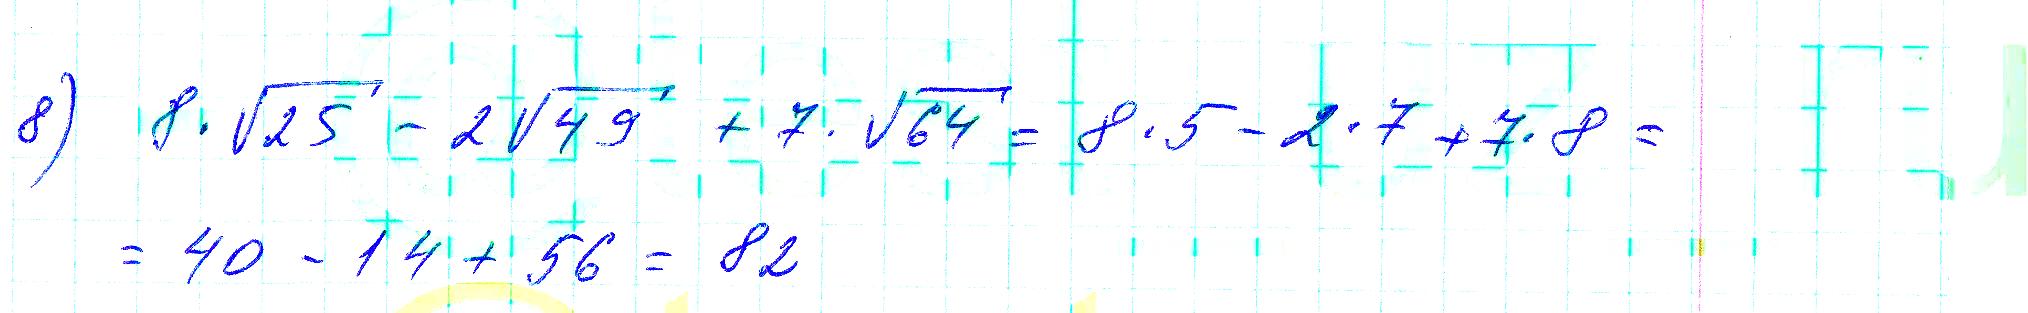 8) 8·√25 - 2√49 + 7·√64 = 8·5 - 2·7 + 7·8 =
= 40 - 14 + 56 = 82